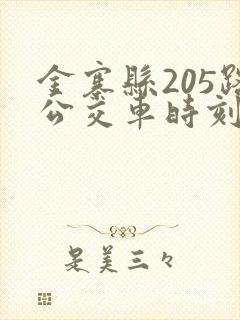 金寨縣205路
公交車時刻
是美三々